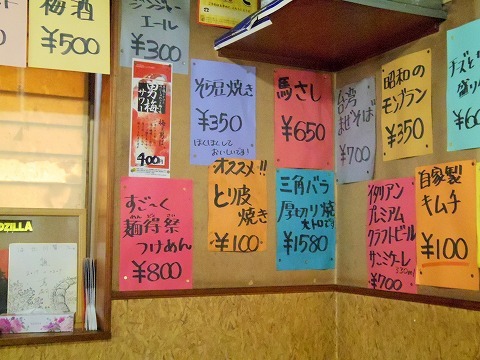 梅酒
¥500
ジンジャー
エール
¥300
男梅
サワー
400円
そら豆焼き
¥350
ほくほくして
おいしいです!
馬さし
¥650
台湾
まぜそば
¥700
昭和の
モンブラン
¥350
チーズと
盛り
¥60
すご〜く
麺得祭
つけめん
¥800
オススメ!!
とり皮
焼き
¥100
三角バラ
厚切り焼
大トロです
¥1580
イタリアン
プレミアム
クラフトビール
サンミケーレ
330ml
¥700
自家製
キムチ
¥100
DZILLA